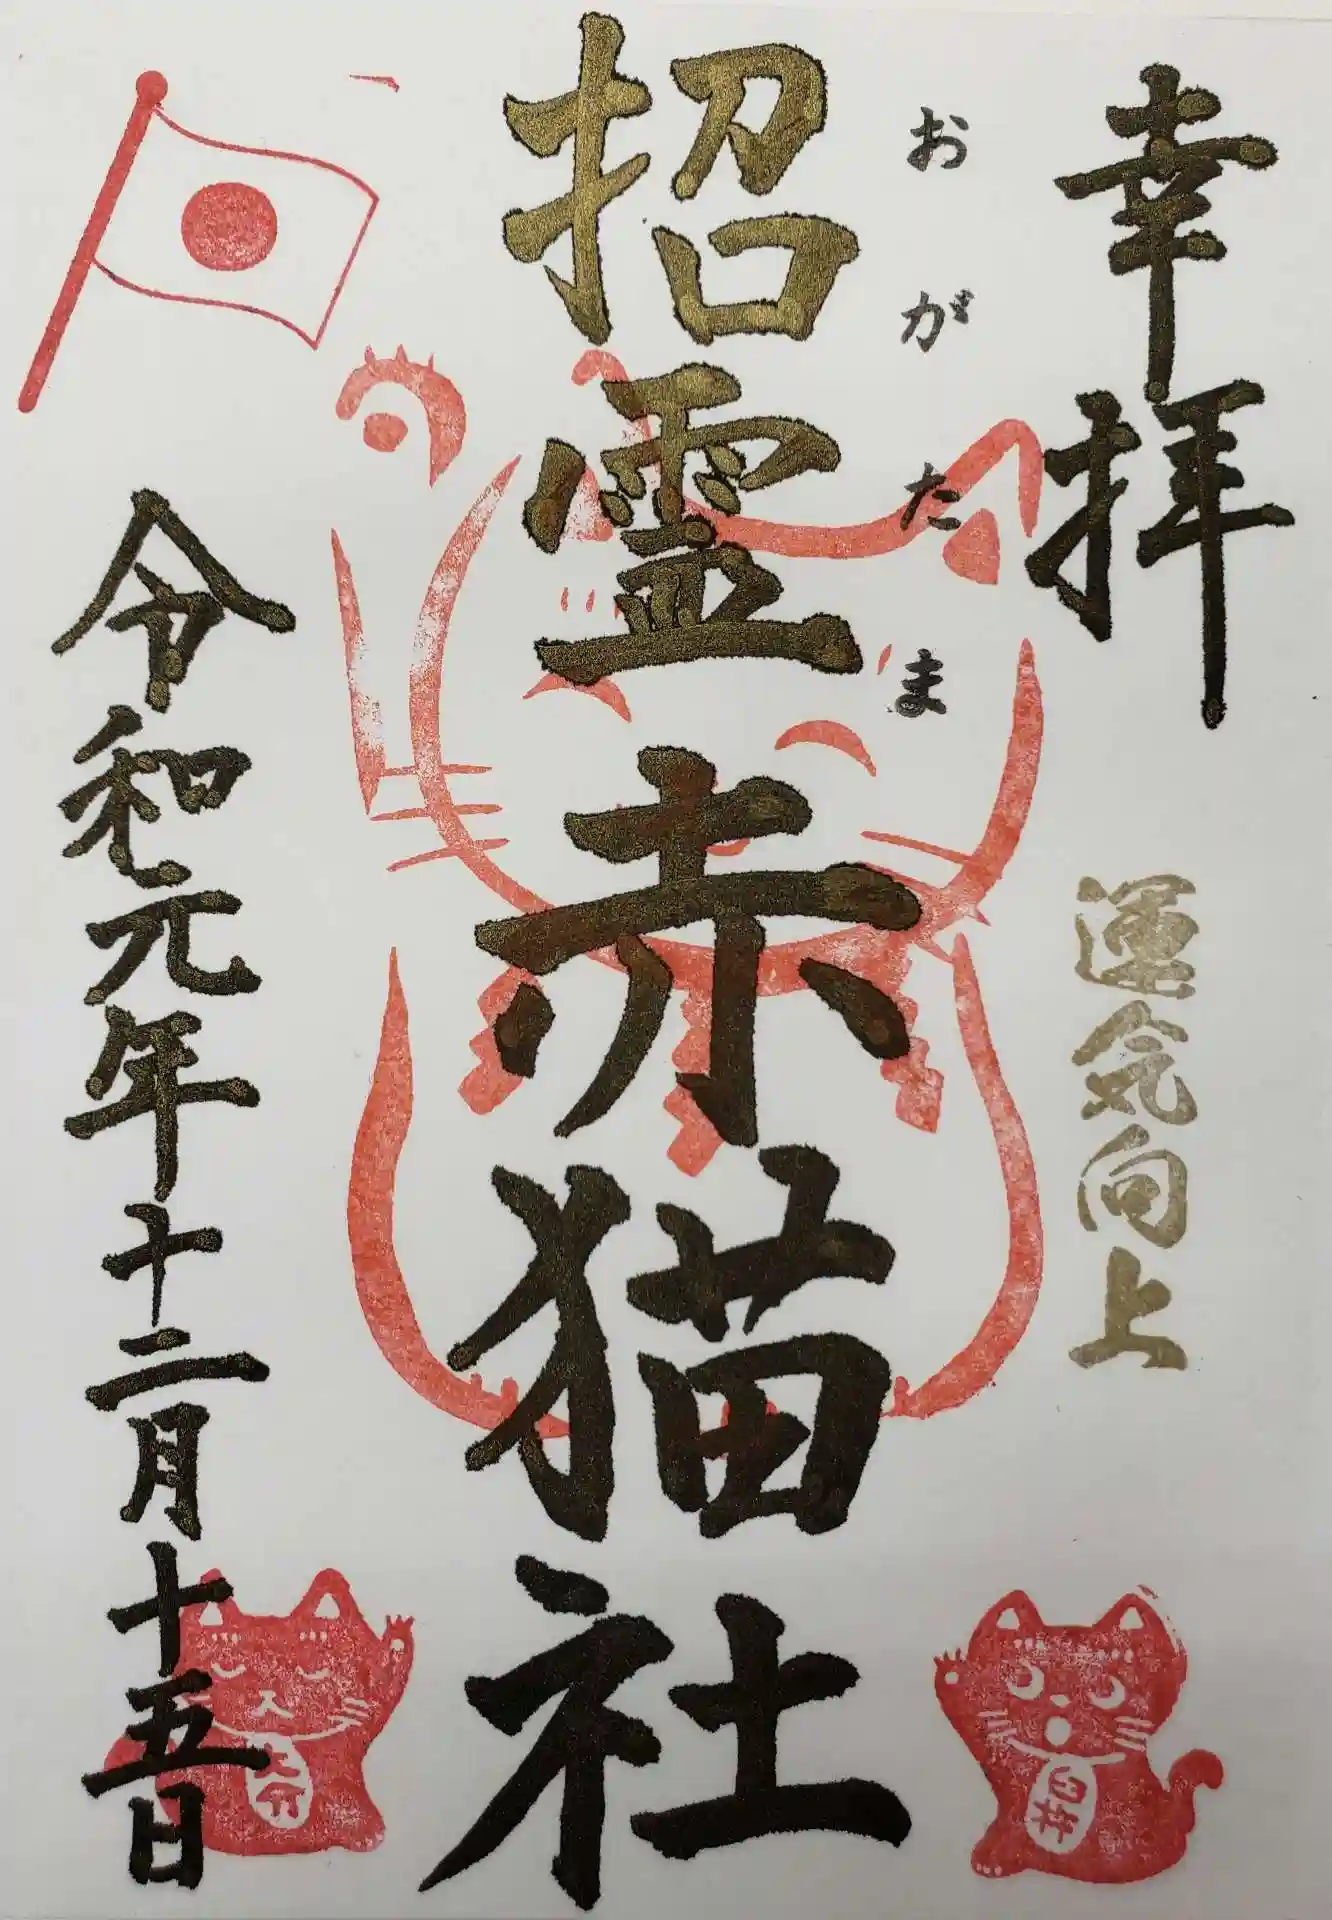 幸拝
運気向上
おがたま
招霊赤猫社
令和元年十二月十五日